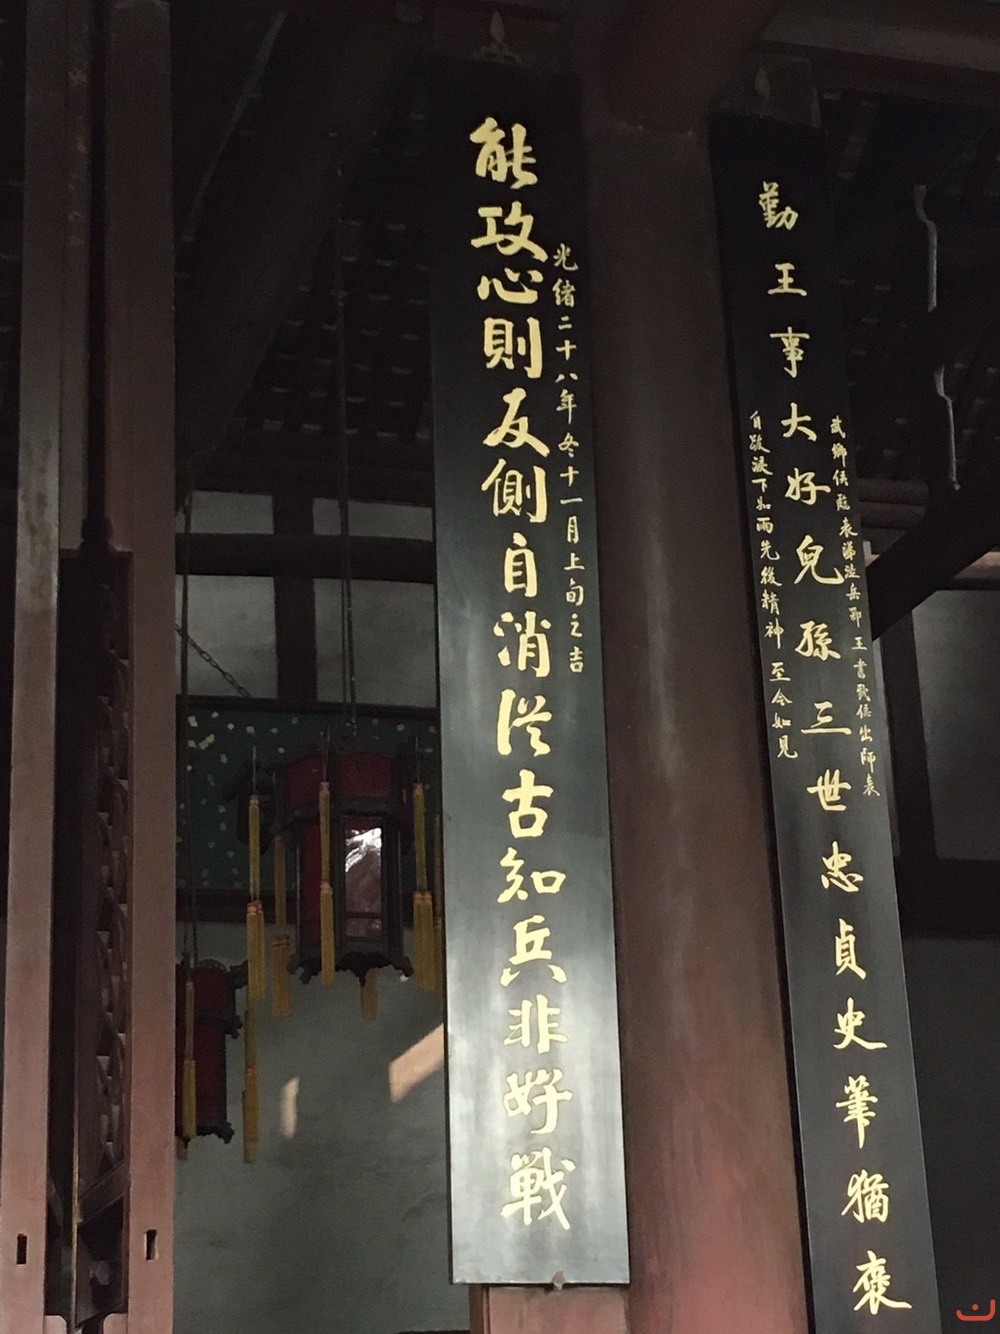 武鄉侯臨表涕泣岳鄂王書武侯出師表
勤王事大好兒孫三世忠貞史筆猶褒
自敘淚下如雨先後精神至今如見
光緒二十八年冬十一月上旬之吉
能攻心則反側自消從古知兵非好戰